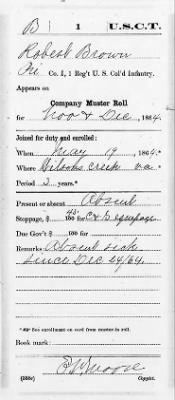 B | 1 | U.S.C.T.
Robert Brown
Pri, Co. I, 1 Reg't U. S. Col'd Infantry.
Appears on
Company Muster Roll
for Nov & Dec, 1864.
Joined for duty and enrolled:
When May 19, 1864.*
Where Wilsons creek va.*
Period 3 years.*
Present or absent Absent
Stoppage, $ 100 for C & G equipage
Due Gov't $ 100 for
Remarks: Absent sick
since Dec 24/64.
*See enrollment on card from muster-in roll.
Book mark:
Copyist.